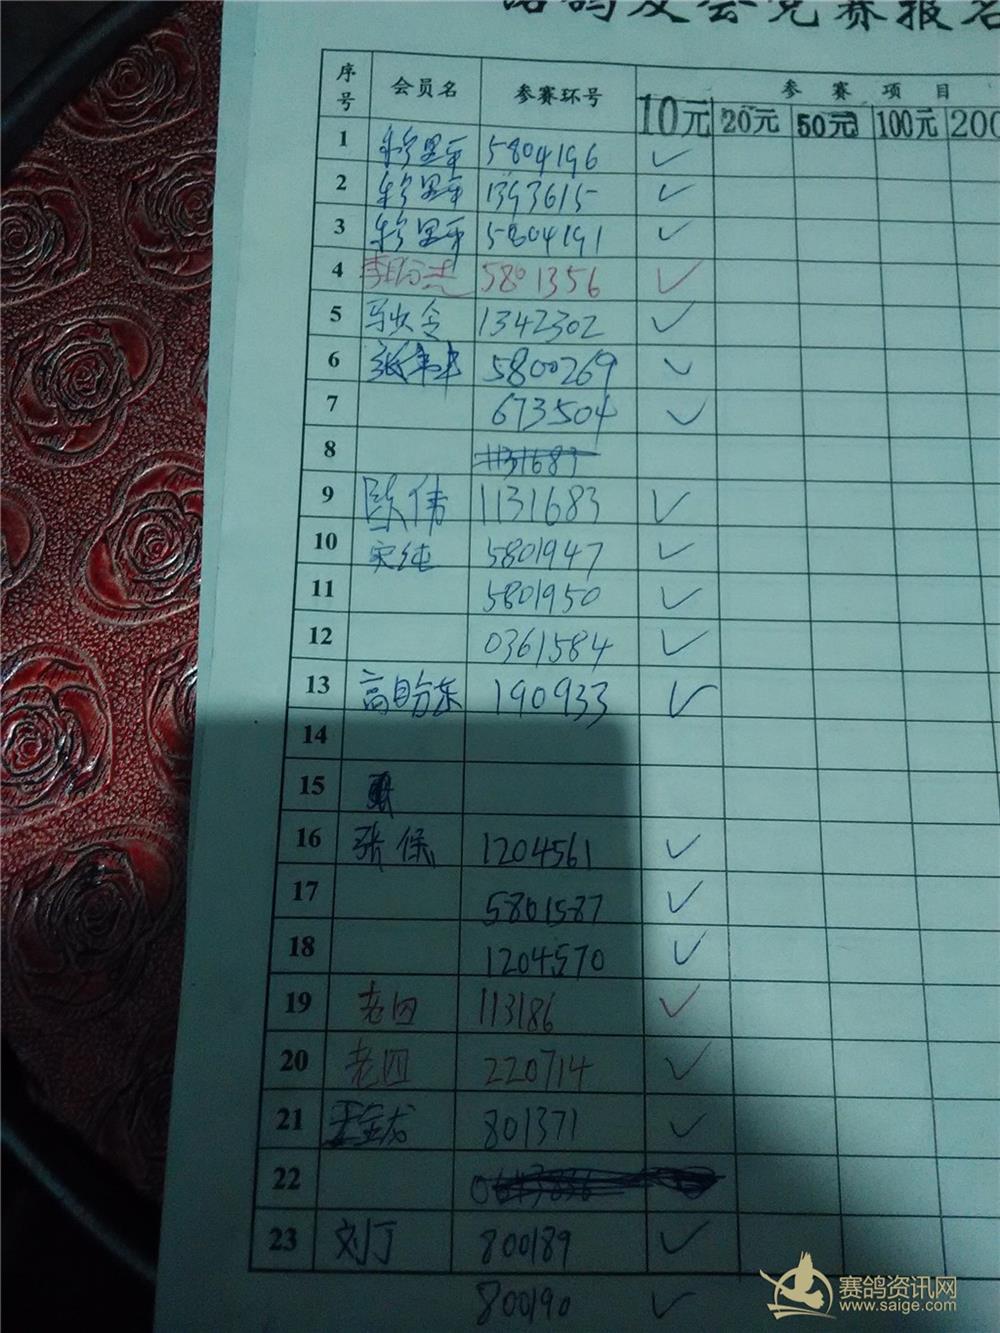 鸽友会竞赛报名
序号 会员名 参赛环号 参 赛 项 目
10元 20元 50元 100元 200
1 5804196 ✓
2 1393615 ✓
3 5804191 ✓
4 5801356 ✓
5 1342302 ✓
6 5800269 ✓
7 673504 ✓
8 1131683
9 欧伟 1131683 ✓
10 宋纯 5801947 ✓
11 5801950 ✓
12 0361584 ✓
13 190933 ✓
14
15
16 张保 1204561 ✓
17 5801587 ✓
18 1204570 ✓
19 老四 113186 ✓
20 老四 220714 ✓
21 801371 ✓
22
23 刘丁 800189 ✓
800190 ✓
赛鸽资讯网
www.saige.com